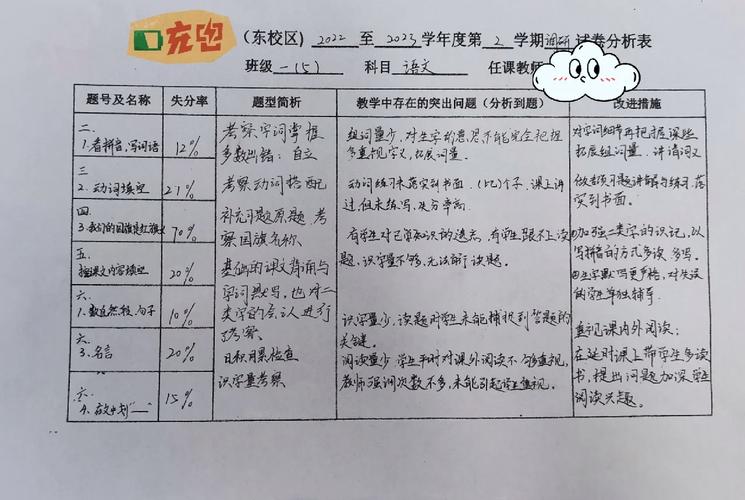 充电
(东校区) 2022 至 2023 学年度第 2 学期调研试卷分析表
班级 一(5) 科目 语文 任课教师
题号及名称 失分率 题型简析 教学中存在的突出问题(分析到题) 改进措施
二.
1.看拼音,写词语 12%
考察字词掌握
多数出错:自立
组词量少,对生字的意思不能完全把握
多重视字义,拓展词量.
对字词细节再把握
拓展组词量.讲清词义
三
2.动词填空 21%
考察动词搭配
动词练习未落实到书面.个子,课上讲
过,但未练写,失分率高.
做专项习题讲解与练习.落
实到书面.
四
3.我们的国旗是红旗 70%
补充习题原题,考
察国旗名称.
有学生对已学知识的遗忘,有学生跟不上读
题,识字量不够,无法审行读题.
加强二类字的识记,以
写拼音的方式多读多写.
生字默写更严格,对失误
的学生单独辅导.
五
按课文内容填空 20%
基础的课文背诵与
字词默写,也对二
类字的会认进行
了考察.
六.
1.数自然段,句子 10%
识字量少,读题时学生未能捕捉到答题的
关键.
重视课内外阅读;
六
3.名言 20%
日积月累检查
阅读量少,学生平时对课外阅读不够重视,
教师强调次数不多,未能引起学生重视.
在延时课上带学生多读
书,提出问题加深学生
阅读兴趣.
六.
4.文中划“—” 15%
识字量考察